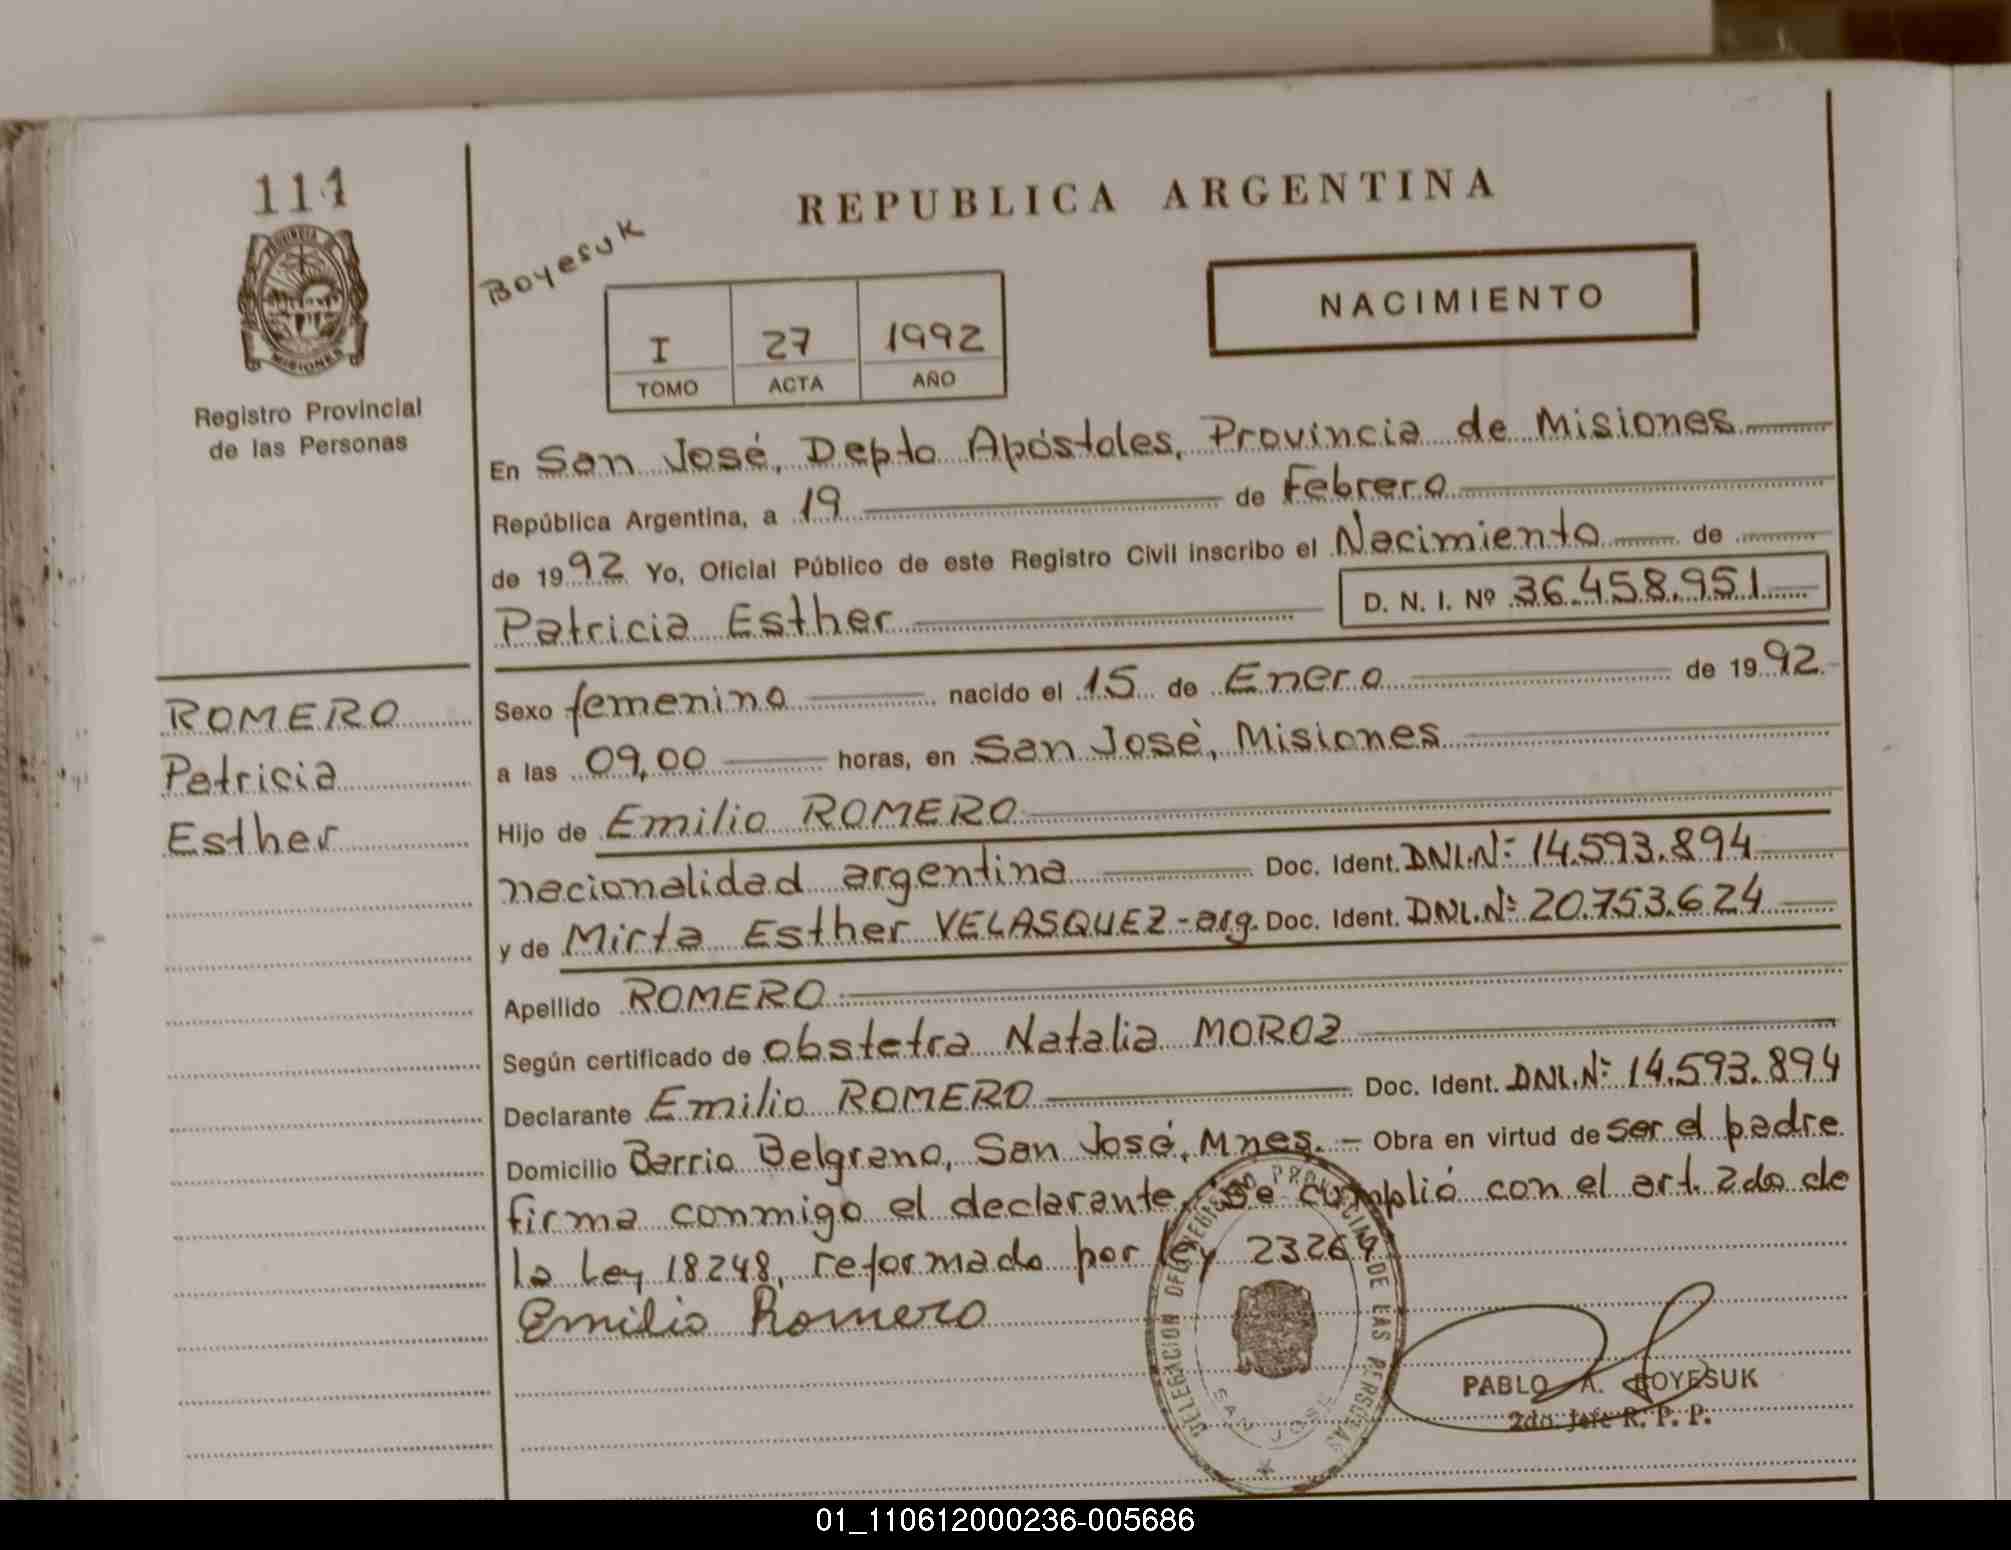 111
PROVINCIA DE
MISIONES
Registro Provincial
de las Personas
REPUBLICA ARGENTINA
Boyesuk
NACIMIENTO
I 27 1992
TOMO ACTA AÑO
En San José, Depto Apóstoles, Provincia de Misiones
República Argentina, a 19 de Febrero
de 1992 Yo, Oficial Público de este Registro Civil inscribo el Nacimiento de
Patricia Esther D. N. I. Nº 36.458.951
ROMERO
Patricia
Esther
Sexo femenino nacido el 15 de Enero de 1992
a las 09,00 horas, en San Josè, Misiones
Hijo de Emilio ROMERO
nacionalidad argentina Doc. Ident. DNI.Nº 14.593.894
y de Mirta Esther VELASQUEZ-arg. Doc. Ident. DNI.Nº 20.753.624
Apellido ROMERO
Según certificado de obstetra Natalia MOROZ
Declarante Emilio ROMERO Doc. Ident. DNI.Nº 14.593.894
Domicilio Barrio Belgrano, San José, Mnes. - Obra en virtud de ser el padre
firma conmigo el declarante, se cumplió con el art. 2do de
la Ley 18248, reformado por ley 23264
Emilio Romero
DELEGACION DEL REGISTRO PROVINCIAL DE LAS PERSONAS
SAN JOSE
PABLO A. BOYESUK
2do. Jefe R. P. P.
01_110612000236-005686